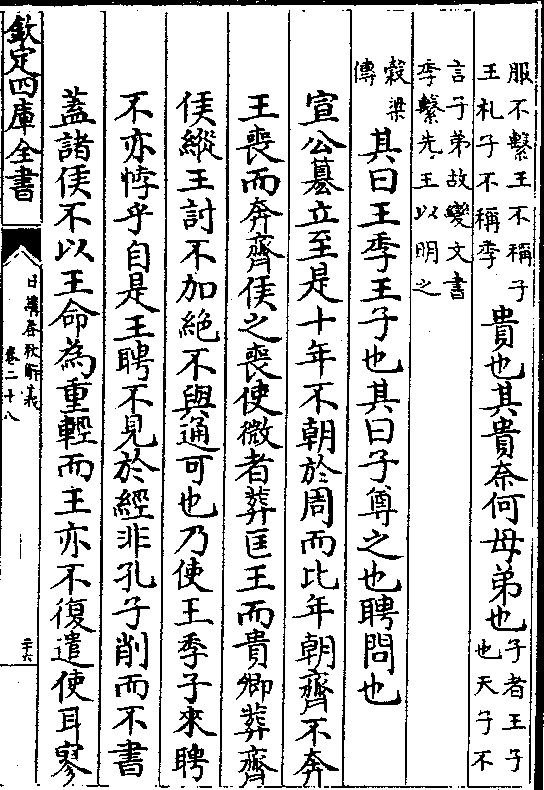 服不繫王不稱子
王札子不稱季
貴也其貴奈何母弟也
子者王子
也天子不
言子弟故變文書
季繫先王以明之
穀梁
傳
其曰王季王子也其曰子尊之也聘問也
宣公簒立至是十年不朝於周而比年朝齊不奔
王喪而奔齊侯之喪使微者葬匡王而貴卿葬齊
侯縱王討不加絶不與通可也乃使王季子來聘
不亦悖乎自是王聘不見於經非孔子削而不書
蓋諸侯不以王命為重輕而王亦不復遣使耳寥
欽定四庫全書
日講春秋解義
卷二十八
二十六